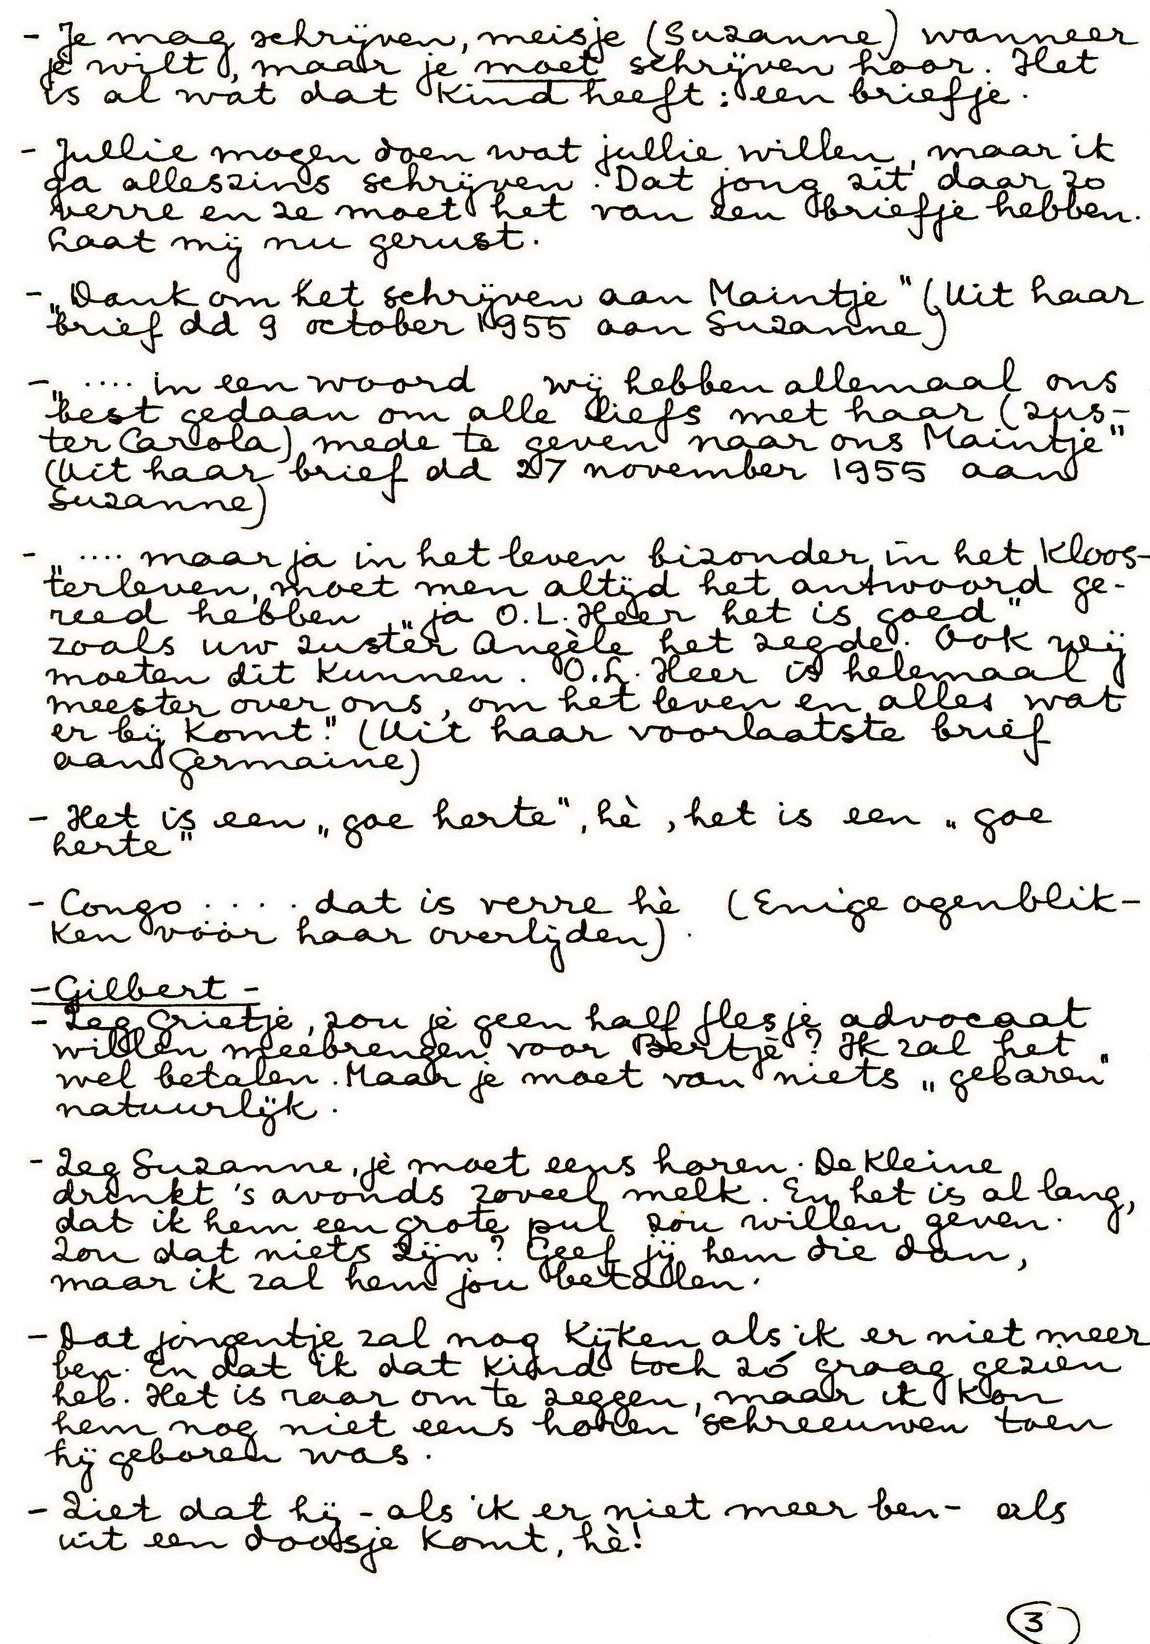 - Je mag schrijven, meisje (Suzanne) wanneer
je wilt, maar je moet schrijven hoor. Het
is al wat dat Kind heeft: een briefje.
- Jullie mogen doen wat jullie willen, maar ik
ga alleszins schrijven. Dat jong zit daar zo
verre en ze moet het van een briefje hebben.
Laat mij nu gerust.
- „Dank om het schrijven aan Maintje" (Uit haar
brief dd 9 october 1955 aan Suzanne)
- „.... in een woord wij hebben allemaal ons
best gedaan om alle liefs met haar (zus-
ter Carola) mede te geven naar ons Maintje"
(Uit haar brief dd 27 november 1955 aan
Suzanne)
- „.... maar ja in het leven bizonder in het Kloos-
terleven, moet men altijd het antwoord ge-
reed hebben „ja O.L.Heer het is goed"
zoals uw zuster Angèle het zegde. Ook wij
moeten dit Kunnen. O.L. Heer is helemaal
meester over ons, om het leven en alles wat
er bij Komt." (Uit haar voorlaatste brief
aan Germaine)
- Het is een „goe herte", hè, het is een „goe
herte"
- Congo .... dat is verre hè (Enige ogenblik-
Ken vóór haar overlijden).
- Gilbert -
- Zeg Grietje, zou je geen half flesje advocaat
willen meebrengen voor Bertje? Ik zal het
wel betalen. Maar je moet van niets „gebaren"
natuurlijk.
- Zeg Suzanne, je moet eens horen. De Kleine
drinkt 's avonds zoveel melk. En het is al lang,
dat ik hem een grote pul zou willen geven.
Zou dat niets zijn? Geef jij hem die dan,
maar ik zal hem jou betalen.
- Dat jongentje zal nog Kijken als ik er niet meer
ben. En dat ik dat Kind toch zó graag gezien
heb. Het is raar om te zeggen, maar ik Kon
hem nog niet eens horen schreeuwen toen
hij geboren was.
- Ziet dat hij - als ik er niet meer ben - als
uit een doosje Komt, hè!
3